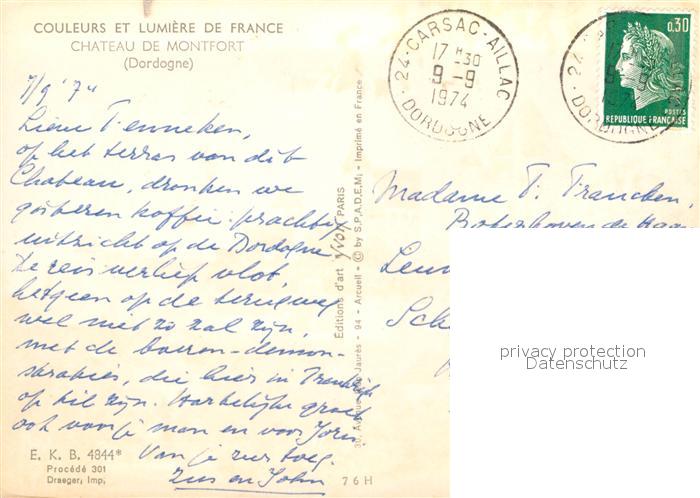 COULEURS ET LUMIÈRE DE FRANCE
CHATEAU DE MONTFORT
(Dordogne)
7/9 '74
Lieve Tenneken,
op het terras van dit
Chateau, dronken we
gisteren koffie. prachtig
uitzicht op de Dordogne
De reis verliep vlot,
hetgeen op de terugweg
wel niet zo zal zijn,
met de boeren-demon-
straties, die hier in Frankrijk
op til zijn. Hartelijke groet
ook voor je man en voor
Van je zus
Zus en John
E. K. B. 4844*
Procédé 301
Draeger, Imp.
76 H
Éditions d'art YVON PARIS
30, Avenue Jaurès - 94 - Arcueil - © by S.P.A.D.E.M. - Imprimé en France
24 - CARSAC-AILLAC
17 H 30
9 - 9
1974
DORDOGNE
0,30
POSTES
REPUBLIQUE FRANÇAISE
Madame T. Francken,
privacy protection
Datenschutz